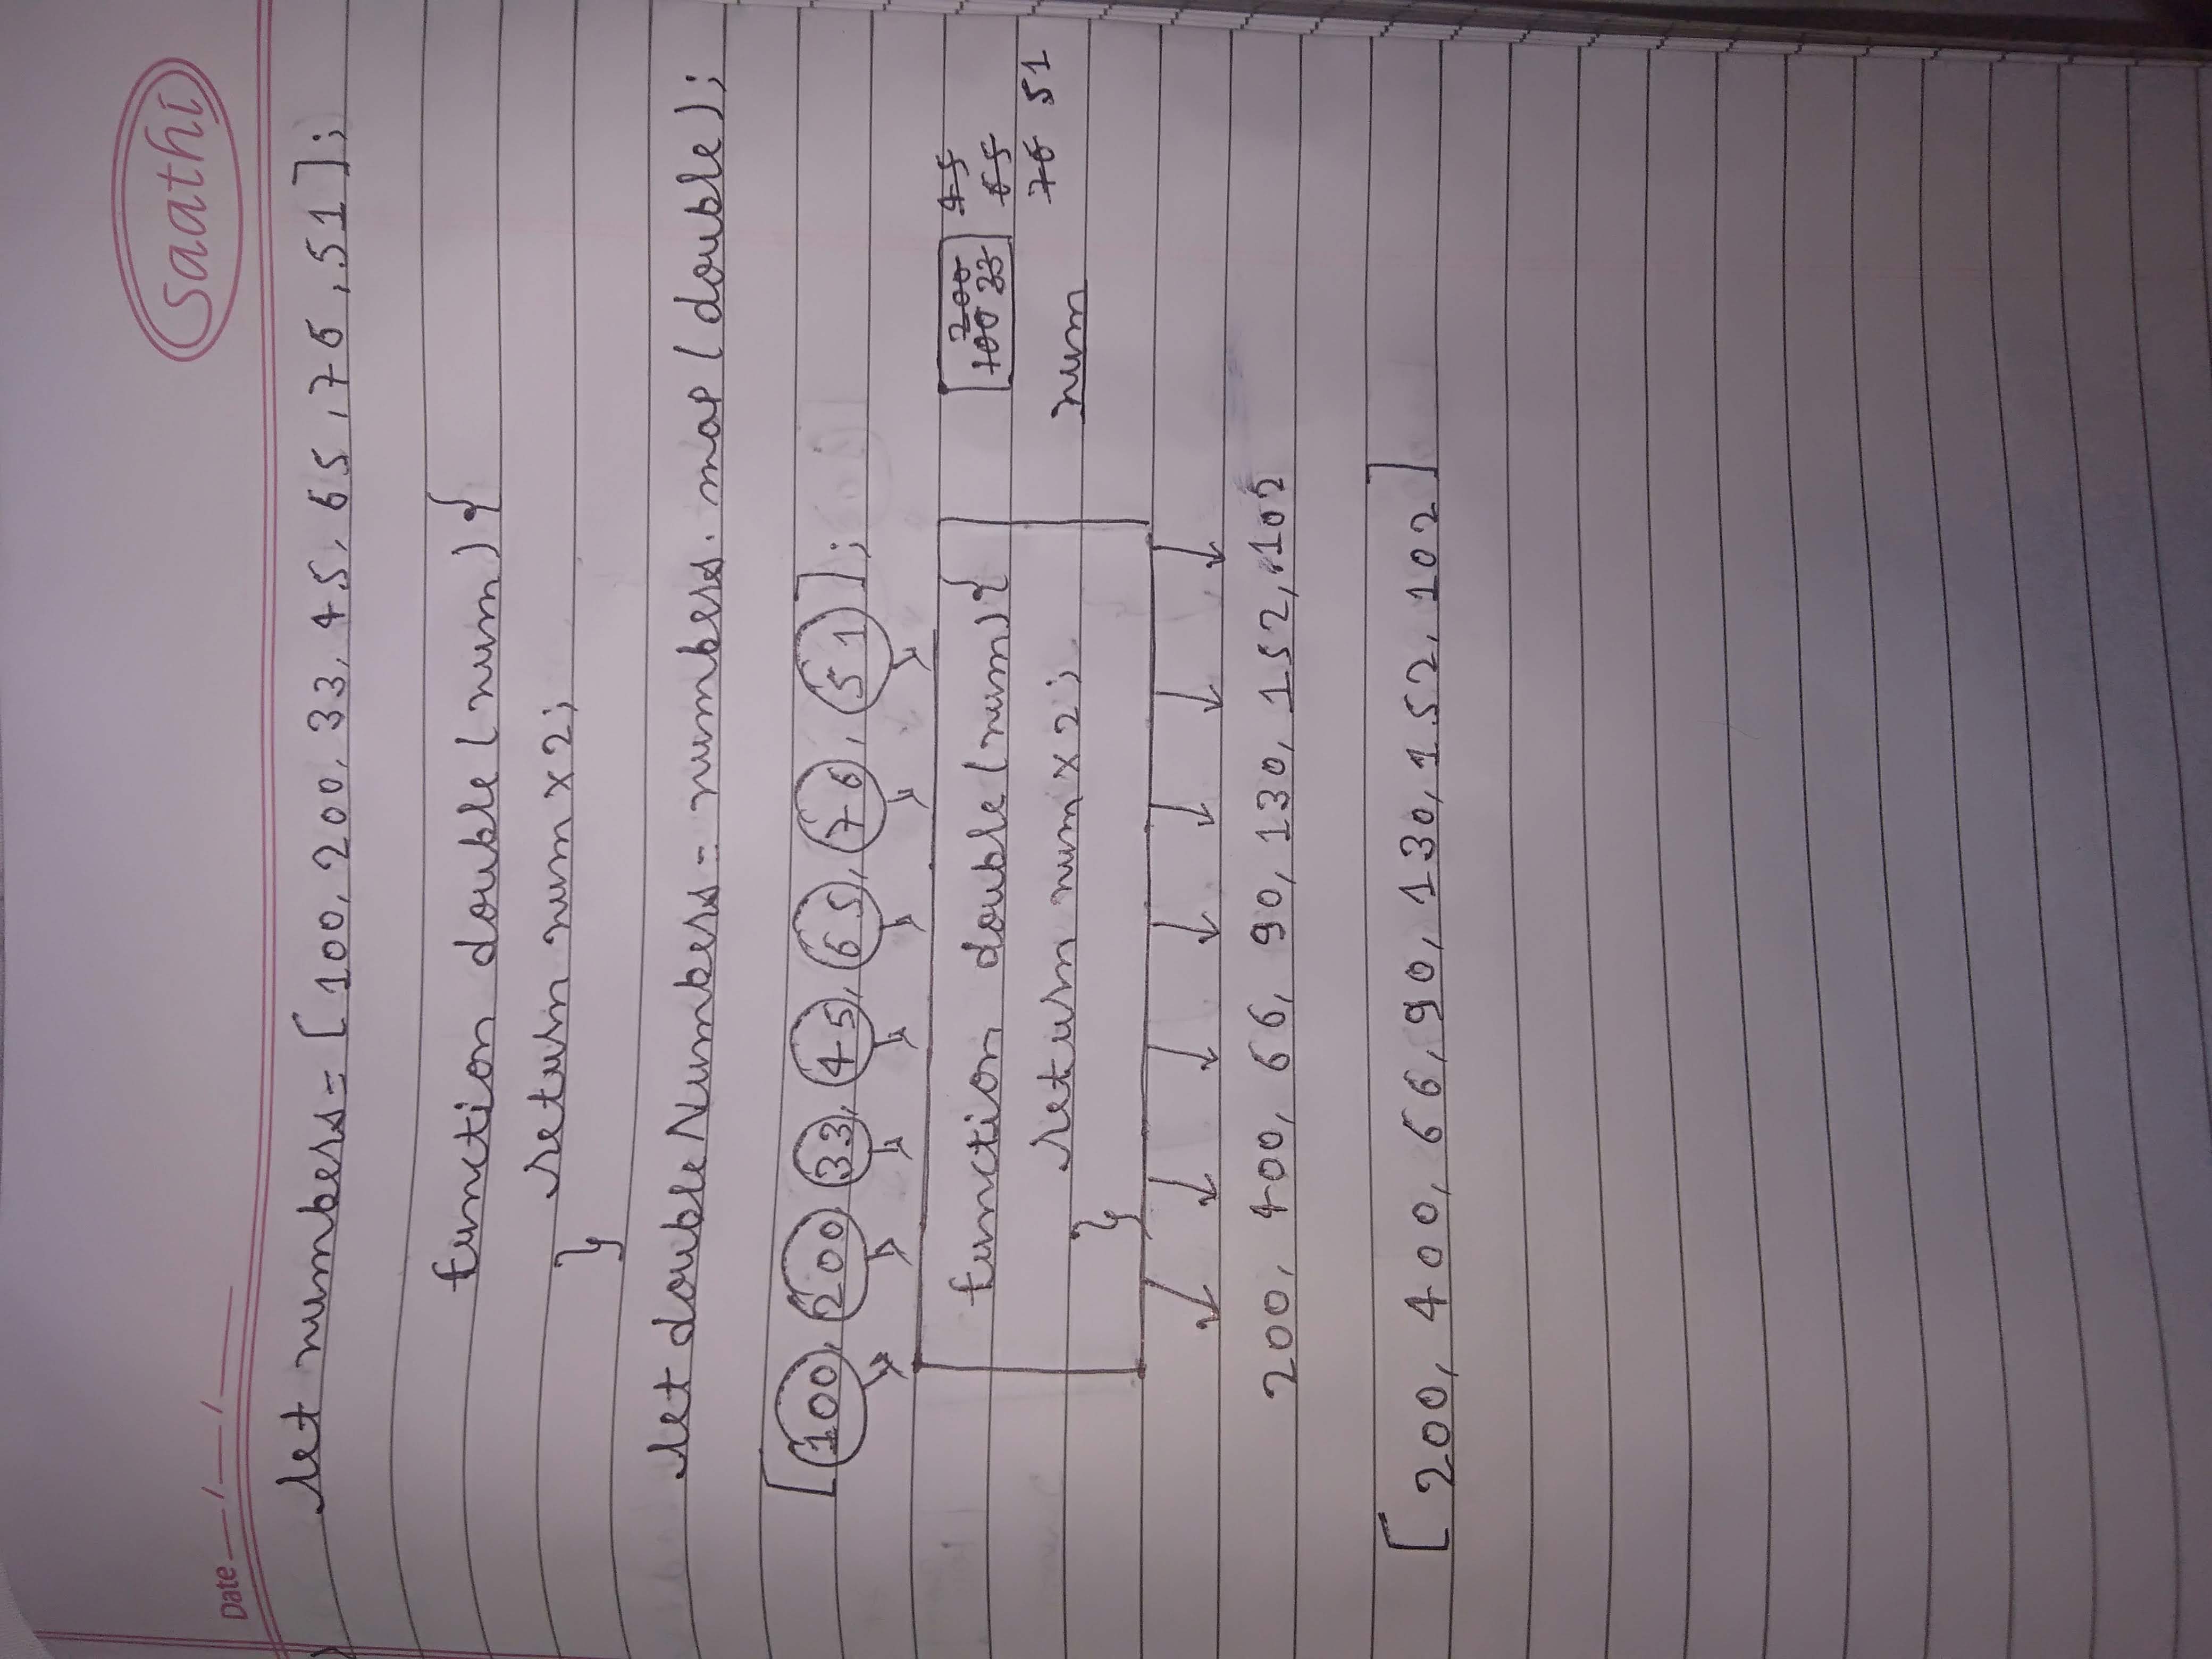 saathi
Date / /
let numbers = [100, 200, 33, 45, 65, 76, 51];
function double (num) {
return num x 2;
}
let doubleNumbers = numbers. map (double);
[100, 200, 33, 45, 65, 76, 51];
function double (num) {
return num x 2;
}
200 45
100 33 65
76 51
num
200, 400, 66, 90, 130, 152, 102
[200, 400, 66, 90, 130, 152, 102]